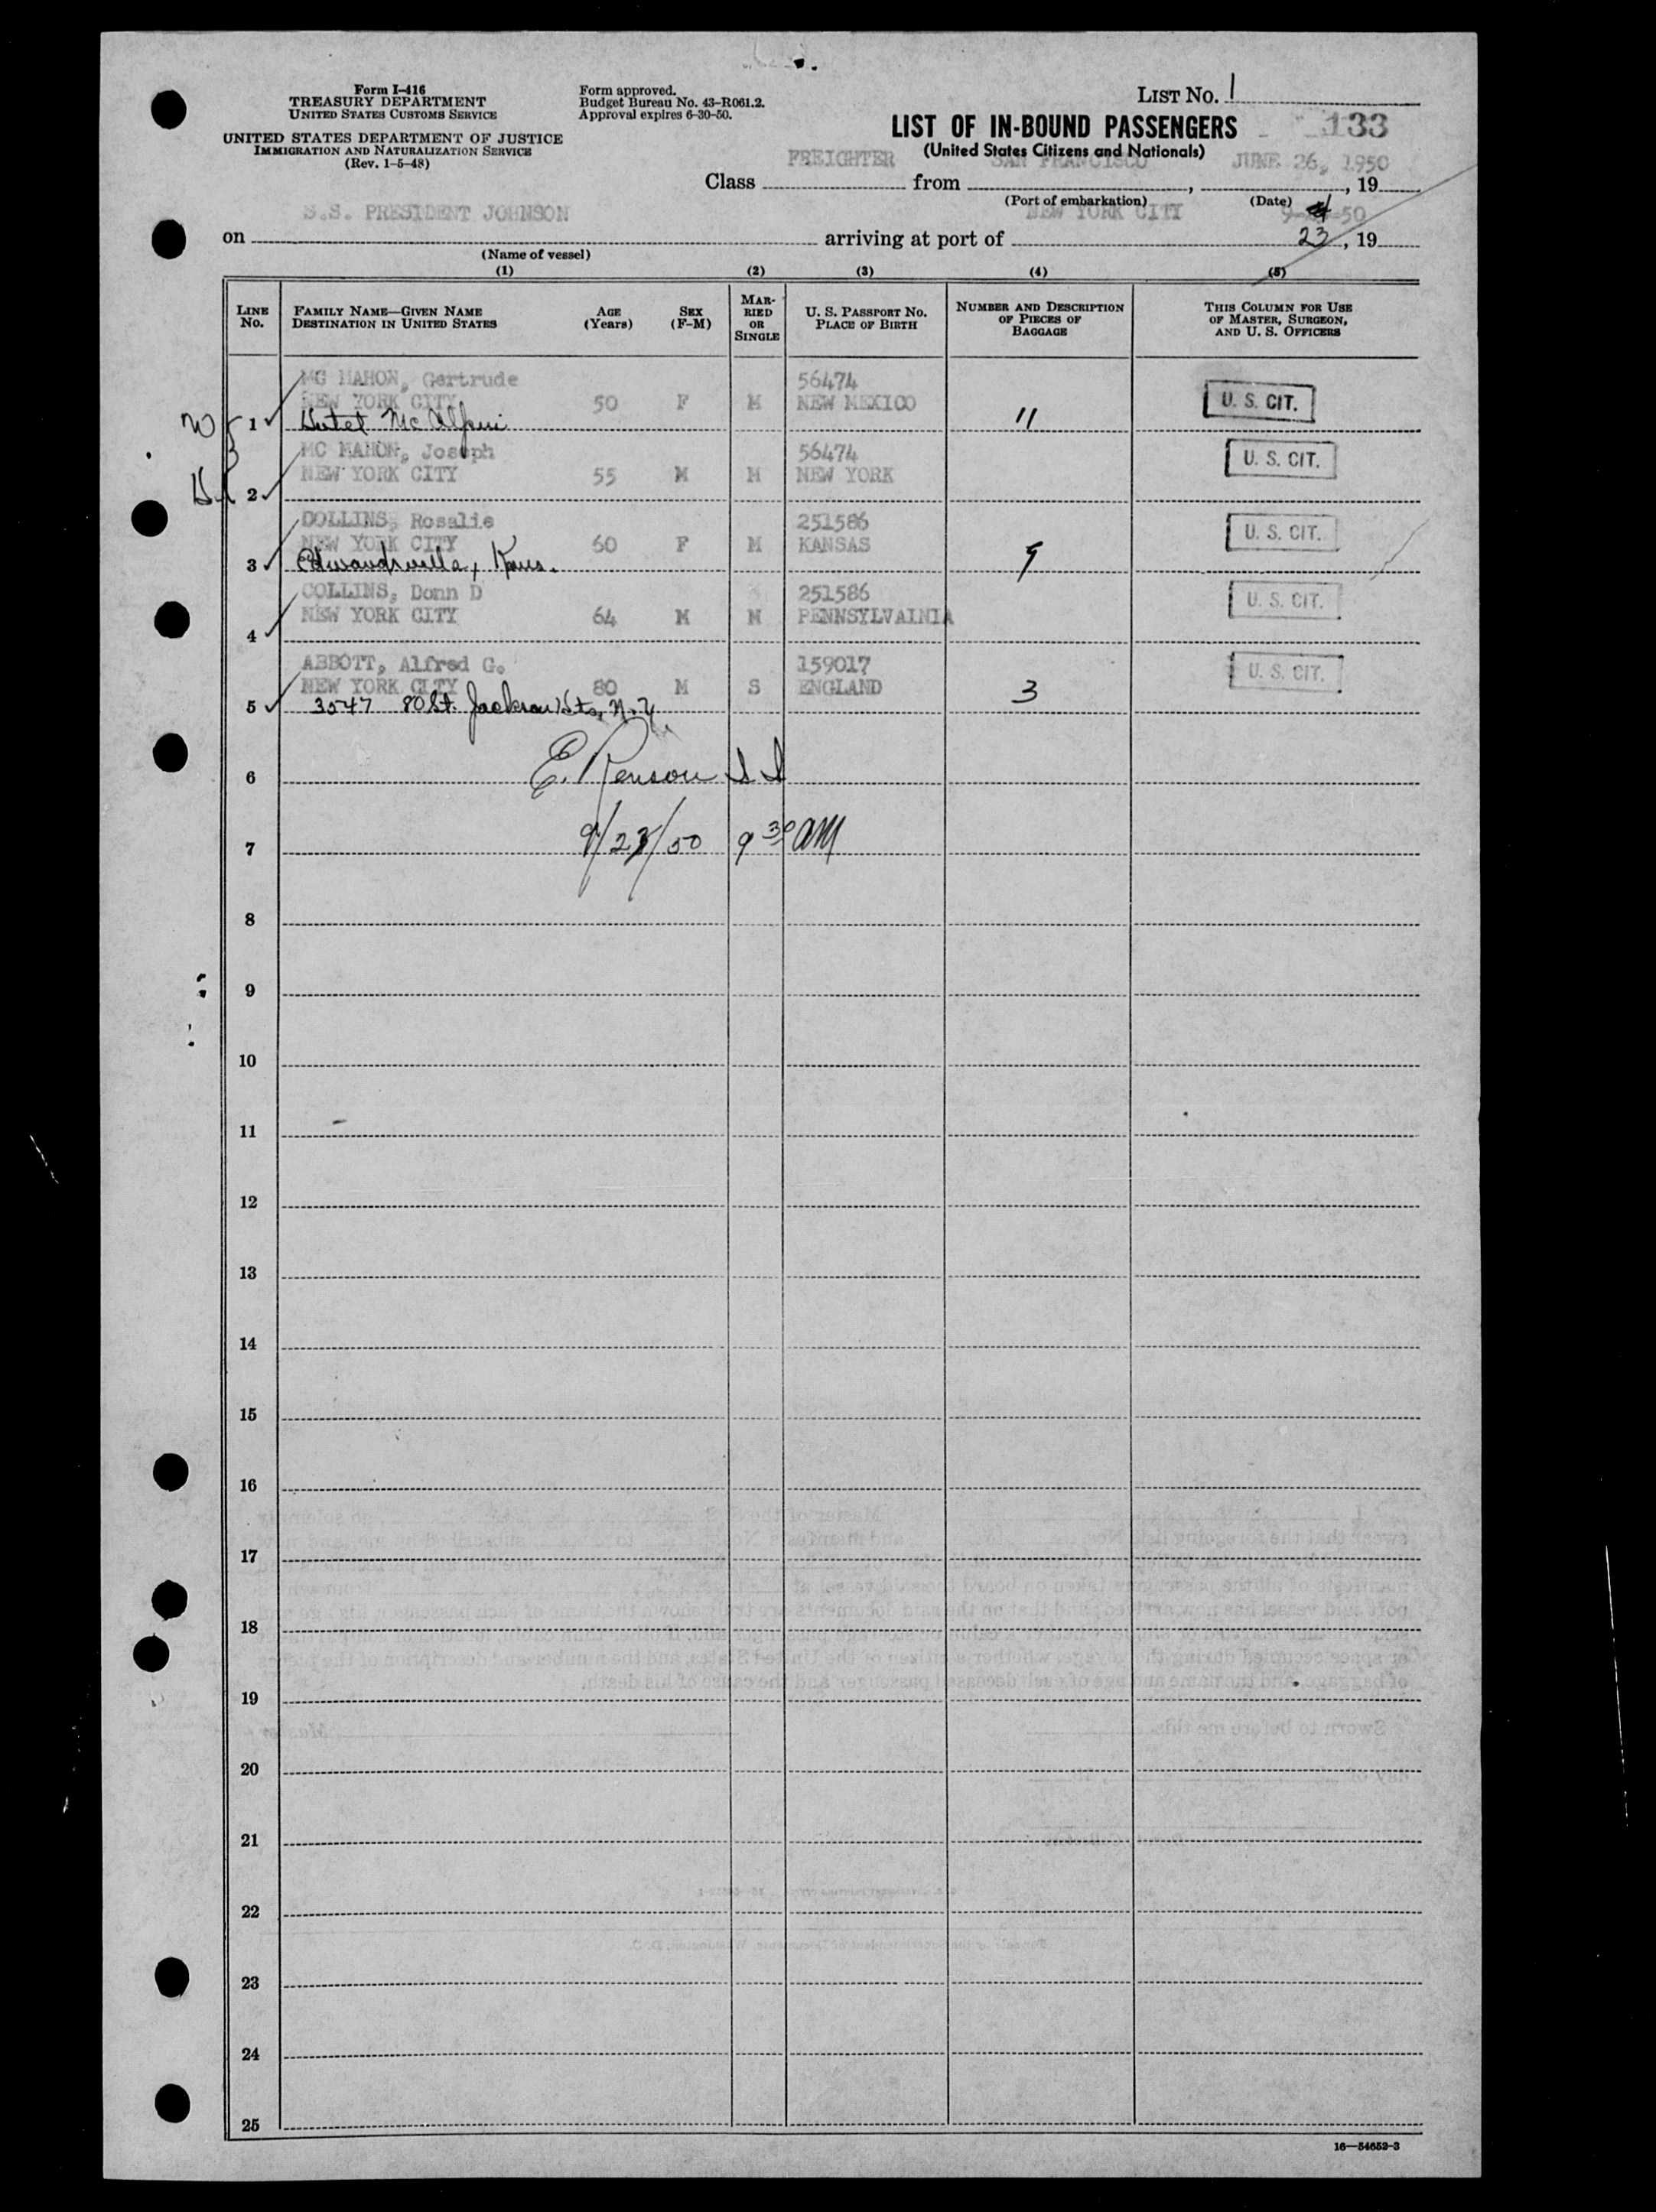 Form I-416
TREASURY DEPARTMENT
UNITED STATES CUSTOMS SERVICE
UNITED STATES DEPARTMENT OF JUSTICE
IMMIGRATION AND NATURALIZATION SERVICE
(Rev. 1-5-48)
Form approved.
Budget Bureau No. 43-R061.2.
Approval expires 6-30-50.
LIST No. 1
LIST OF IN-BOUND PASSENGERS
133
(United States Citizens and Nationals)
FREIGHTER SAN FRANCISCO JUNE 26, 1950
Class from , , 19
(Port of embarkation) (Date)
S.S. PRESIDENT JOHNSON NEW YORK CITY 9- -50
on arriving at port of 23, 19
(Name of vessel)
(1) (2) (3) (4) (5)
LINE No.
FAMILY NAME—GIVEN NAME
DESTINATION IN UNITED STATES
AGE (Years)
SEX (F-M)
MARRIED OR SINGLE
U. S. PASSPORT No.
PLACE OF BIRTH
NUMBER AND DESCRIPTION OF PIECES OF BAGGAGE
THIS COLUMN FOR USE OF MASTER, SURGEON, AND U. S. OFFICERS
MC MAHON, Gertrude 56474
NEW YORK CITY 50 F M NEW MEXICO U. S. CIT.
1 Hotel McAlpin 11
MC MAHON, Joseph 56474 U. S. CIT.
NEW YORK CITY 55 M M NEW YORK
2
COLLINS, Rosalie 251586 U. S. CIT.
NEW YORK CITY 60 F M KANSAS
3 Edwardsville, Kans. 9
COLLINS, Donn D 251586 U. S. CIT.
NEW YORK CITY 64 M M PENNSYLVAINIA
4
ABBOTT, Alfred G. 159017 U. S. CIT.
NEW YORK CITY 80 M S ENGLAND 3
5 3547 80 St. Jackson Hts, N.Y.
6 E. Renson I I
7 9/23/50 9 30 AM
8
9
10
11
12
13
14
15
16
17
18
19
20
21
22
23
24
25
16—54652-3